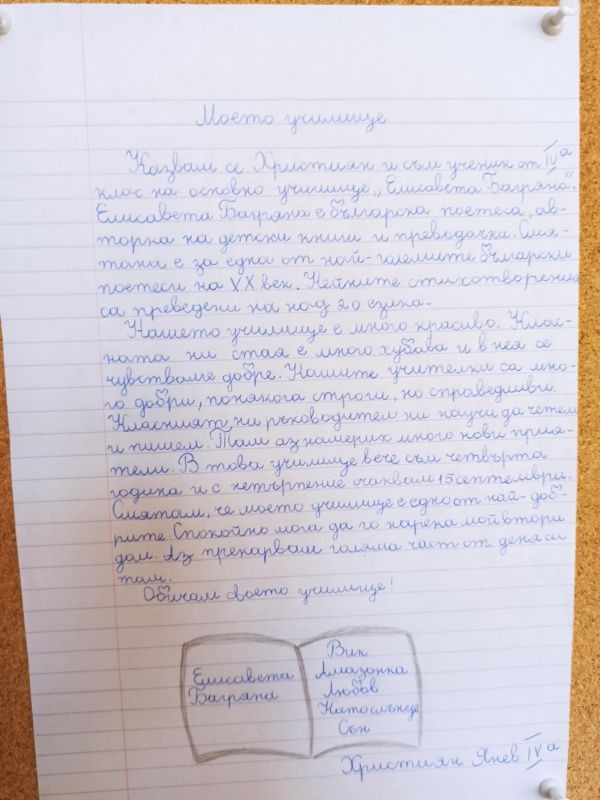 Моето училище
Казвам се Християн и съм ученик от IVа
клас на основно училище „Елисавета Багряна".
Елисавета Багряна е българска поетеса, ав-
торка на детски книги и преводачка. Смя-
тана е за една от най-големите български
поетеси на XX век. Нейните стихотворения
са преведени на над 20 езика.
Нашето училище е много красиво. Клас-
ната ни стая е много хубава и в нея се
чувстваме добре. Нашите учителки са мно-
го добри, понякога строги, но справедливи.
Класният ни ръководител ни научи да четем
и пишем. Там аз намерих много нови прия-
тели. В това училище вече съм четвърта
година и с нетърпение очаквам 15 септември.
Смятам, че моето училище е едно от най-доб-
рите. Спокойно мога да го нарека мой втори
дом. Аз прекарвам голяма част от деня си
там.
Обичам своето училище!
Елисавета
Багряна
Вик
Амазонка
Любов
Катослънце
Сън
Християн Янев IVа